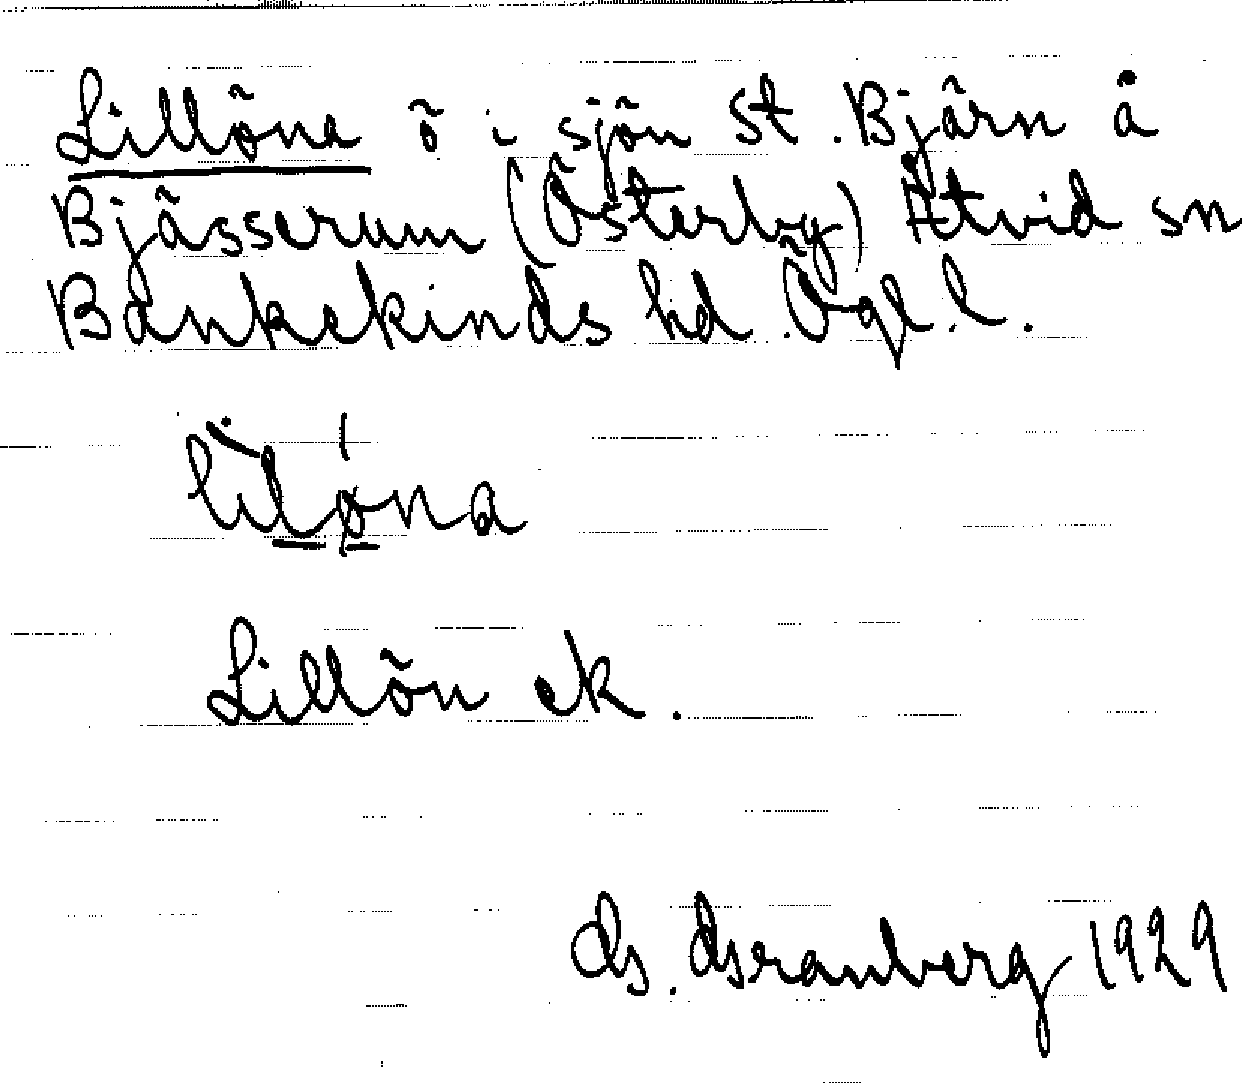 Lillöna ö i sjön St. Bjärn å
Bjässerum (Österby) Åtvid sn
Bankekinds hd. Ögl. l.
Lillön ek.
1929